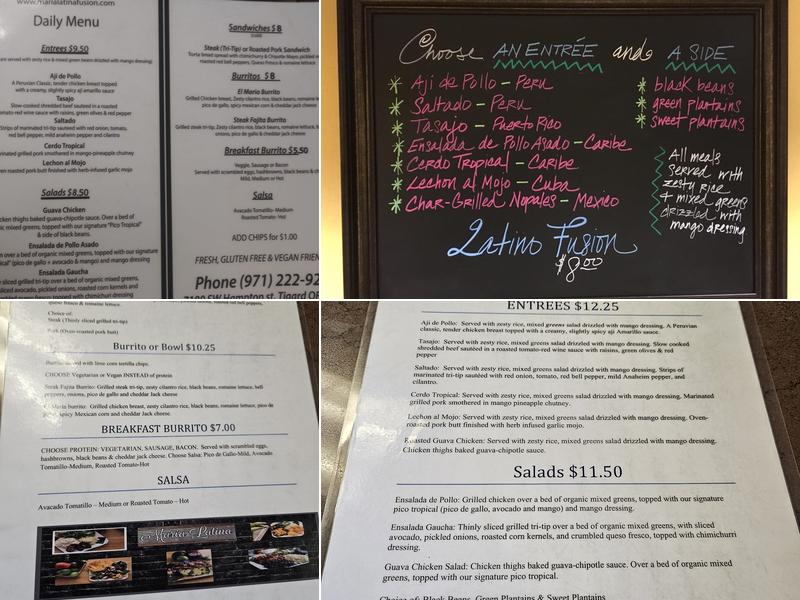 www.marialatinafusion.com
Daily Menu
Entrees $9.50
are served with zesty rice & mixed green beans drizzled with mango dressing)
Aji de Pollo
A Peruvian Classic, tender chicken breast topped
with a creamy, slightly spicy aji amarillo sauce
Tasajo
Slow-cooked shredded beef sautéed in a roasted
tomato-red wine sauce with raisins, green olives & red pepper
Saltado
Strips of marinated tri-tip sautéed with red onion, tomato,
red bell pepper, mild anaheim pepper and cilantro
Cerdo Tropical
grilled pork smothered in mango-pineapple chutney
Lechon al Mojo
roasted pork butt finished with herb-infused garlic mojo
Salads $8.50
Guava Chicken
cken thighs baked guava-chipotle sauce. Over a bed of
ic mixed greens, topped with our signature "Pico Tropical"
& side of black beans.
Ensalada de Pollo Asado
over a bed of organic mixed greens, topped with our signature
ical" (pico de gallo + avocado & mango) and mango dressing
Ensalada Gaucha
y sliced grilled tri-tip over a bed of organic mixed greens,
avocado, pickled onions, roasted corn kernels and
Sandwiches $ 8
Steak (Tri-Tip) or Roasted Pork Sandwich
Torta bread spread with chimichurri & Chipotle Mayo, pickled
roasted red bell peppers, Queso Fresco & romaine lettuce
Burritos $ 8
El Maria Burrito
Grilled Chicken breast, Zesty cilantro rice, black beans, romaine l
pico de gallo, spicy mexican corn & cheddar jack cheese
Steak Fajita Burrito
Grilled steak tri-tip, Zesty cilantro rice, black beans, romaine lettuce,
onions, pico de gallo & cheddar jack cheese
Breakfast Burrito $5.50
Veggie, Sausage or Bacon
Served with scrambled eggs, hashbrowns, black beans & ch
Mild, Medium or Hot
Salsa
Avocado Tomatillo- Medium
Roasted Tomato- Hot
ADD CHIPS for $1.00
FRESH, GLUTEN FREE & VEGAN FRIEN
Phone (971) 222-92
7100 SW Hampton st, Tigard OR
Choose AN ENTRÉE and A SIDE
Aji de Pollo – Peru
Saltado – Peru
Tasajo – Puerto Rico
Ensalada de Pollo Asado – Caribe
Cerdo Tropical – Caribe
Lechon al Mojo – Cuba
Char-Grilled Nopales – Mexico
black beans
green plantains
sweet plantains
All meals
served with
zesty rice
+ mixed greens
drizzled with
mango dressing
Latino Fusion
$8.00
queso fresco & romaine lettuce.
Choice of:
Steak (Thinly sliced grilled tri-tip)
Pork (Oven-roasted pork butt)
Burrito or Bowl $10.25
Burrito served with lime corn tortilla chips.
CHOOSE Vegetarian or Vegan INSTEAD of protein
Steak Fajita Burrito: Grilled steak tri-tip, zesty cilantro rice, black beans, romaine lettuce, bell
peppers, onions, pico de gallo and cheddar Jack cheese
El Maria burrito: Grilled chicken breast, zesty cilantro rice, black beans, romaine lettuce, pico de
gallo, spicy Mexican corn and cheddar Jack cheese.
BREAKFAST BURRITO $7.00
CHOOSE PROTEIN: VEGETARIAN, SAUSAGE, BACON. Served with scrambled eggs,
hashbrowns, black beans & cheddar jack cheese. Choose Salsa: Pico de Gallo-Mild, Avocado
Tomatillo-Medium, Roasted Tomato-Hot
SALSA
Avocado Tomatillo – Medium or Roasted Tomato – Hot
Maria Latina
ENTREES $12.25
Aji de Pollo: Served with zesty rice, mixed greens salad drizzled with mango dressing. A Peruvian
classic, tender chicken breast topped with a creamy, slightly spicy aji Amarillo sauce.
Tasajo: Served with zesty rice, mixed greens salad drizzled with mango dressing. Slow cooked
shredded beef sautéed in a roasted tomato-red wine sauce with raisins, green olives & red
pepper
Saltado: Served with zesty rice, mixed greens salad drizzled with mango dressing. Strips of
marinated tri-tip sautéed with red onion, tomato, red bell pepper, mild Anaheim pepper, and
cilantro.
Cerdo Tropical: Served with zesty rice, mixed greens salad drizzled with mango dressing. Marinated
grilled pork smothered in mango pineapple chutney.
Lechon al Mojo: Served with zesty rice, mixed greens salad drizzled with mango dressing. Oven-
roasted pork butt finished with herb infused garlic mojo.
Roasted Guava Chicken: Served with zesty rice, mixed greens salad drizzled with mango dressing.
Chicken thighs baked guava-chipotle sauce.
Salads $11.50
Ensalada de Pollo: Grilled chicken over a bed of organic mixed greens, topped with our signature
pico tropical (pico de gallo, avocado and mango) and mango dressing.
Ensalada Gaucha: Thinly sliced grilled tri-tip over a bed of organic mixed greens, with sliced
avocado, pickled onions, roasted corn kernels, and crumbled queso fresco, topped with chimichurri
dressing.
Guava Chicken Salad: Chicken thighs baked guava-chipotle sauce. Over a bed of organic mixed
greens, topped with our signature pico tropical.
Choice of: Black Beans, Green Plantains & Sweet Plantains